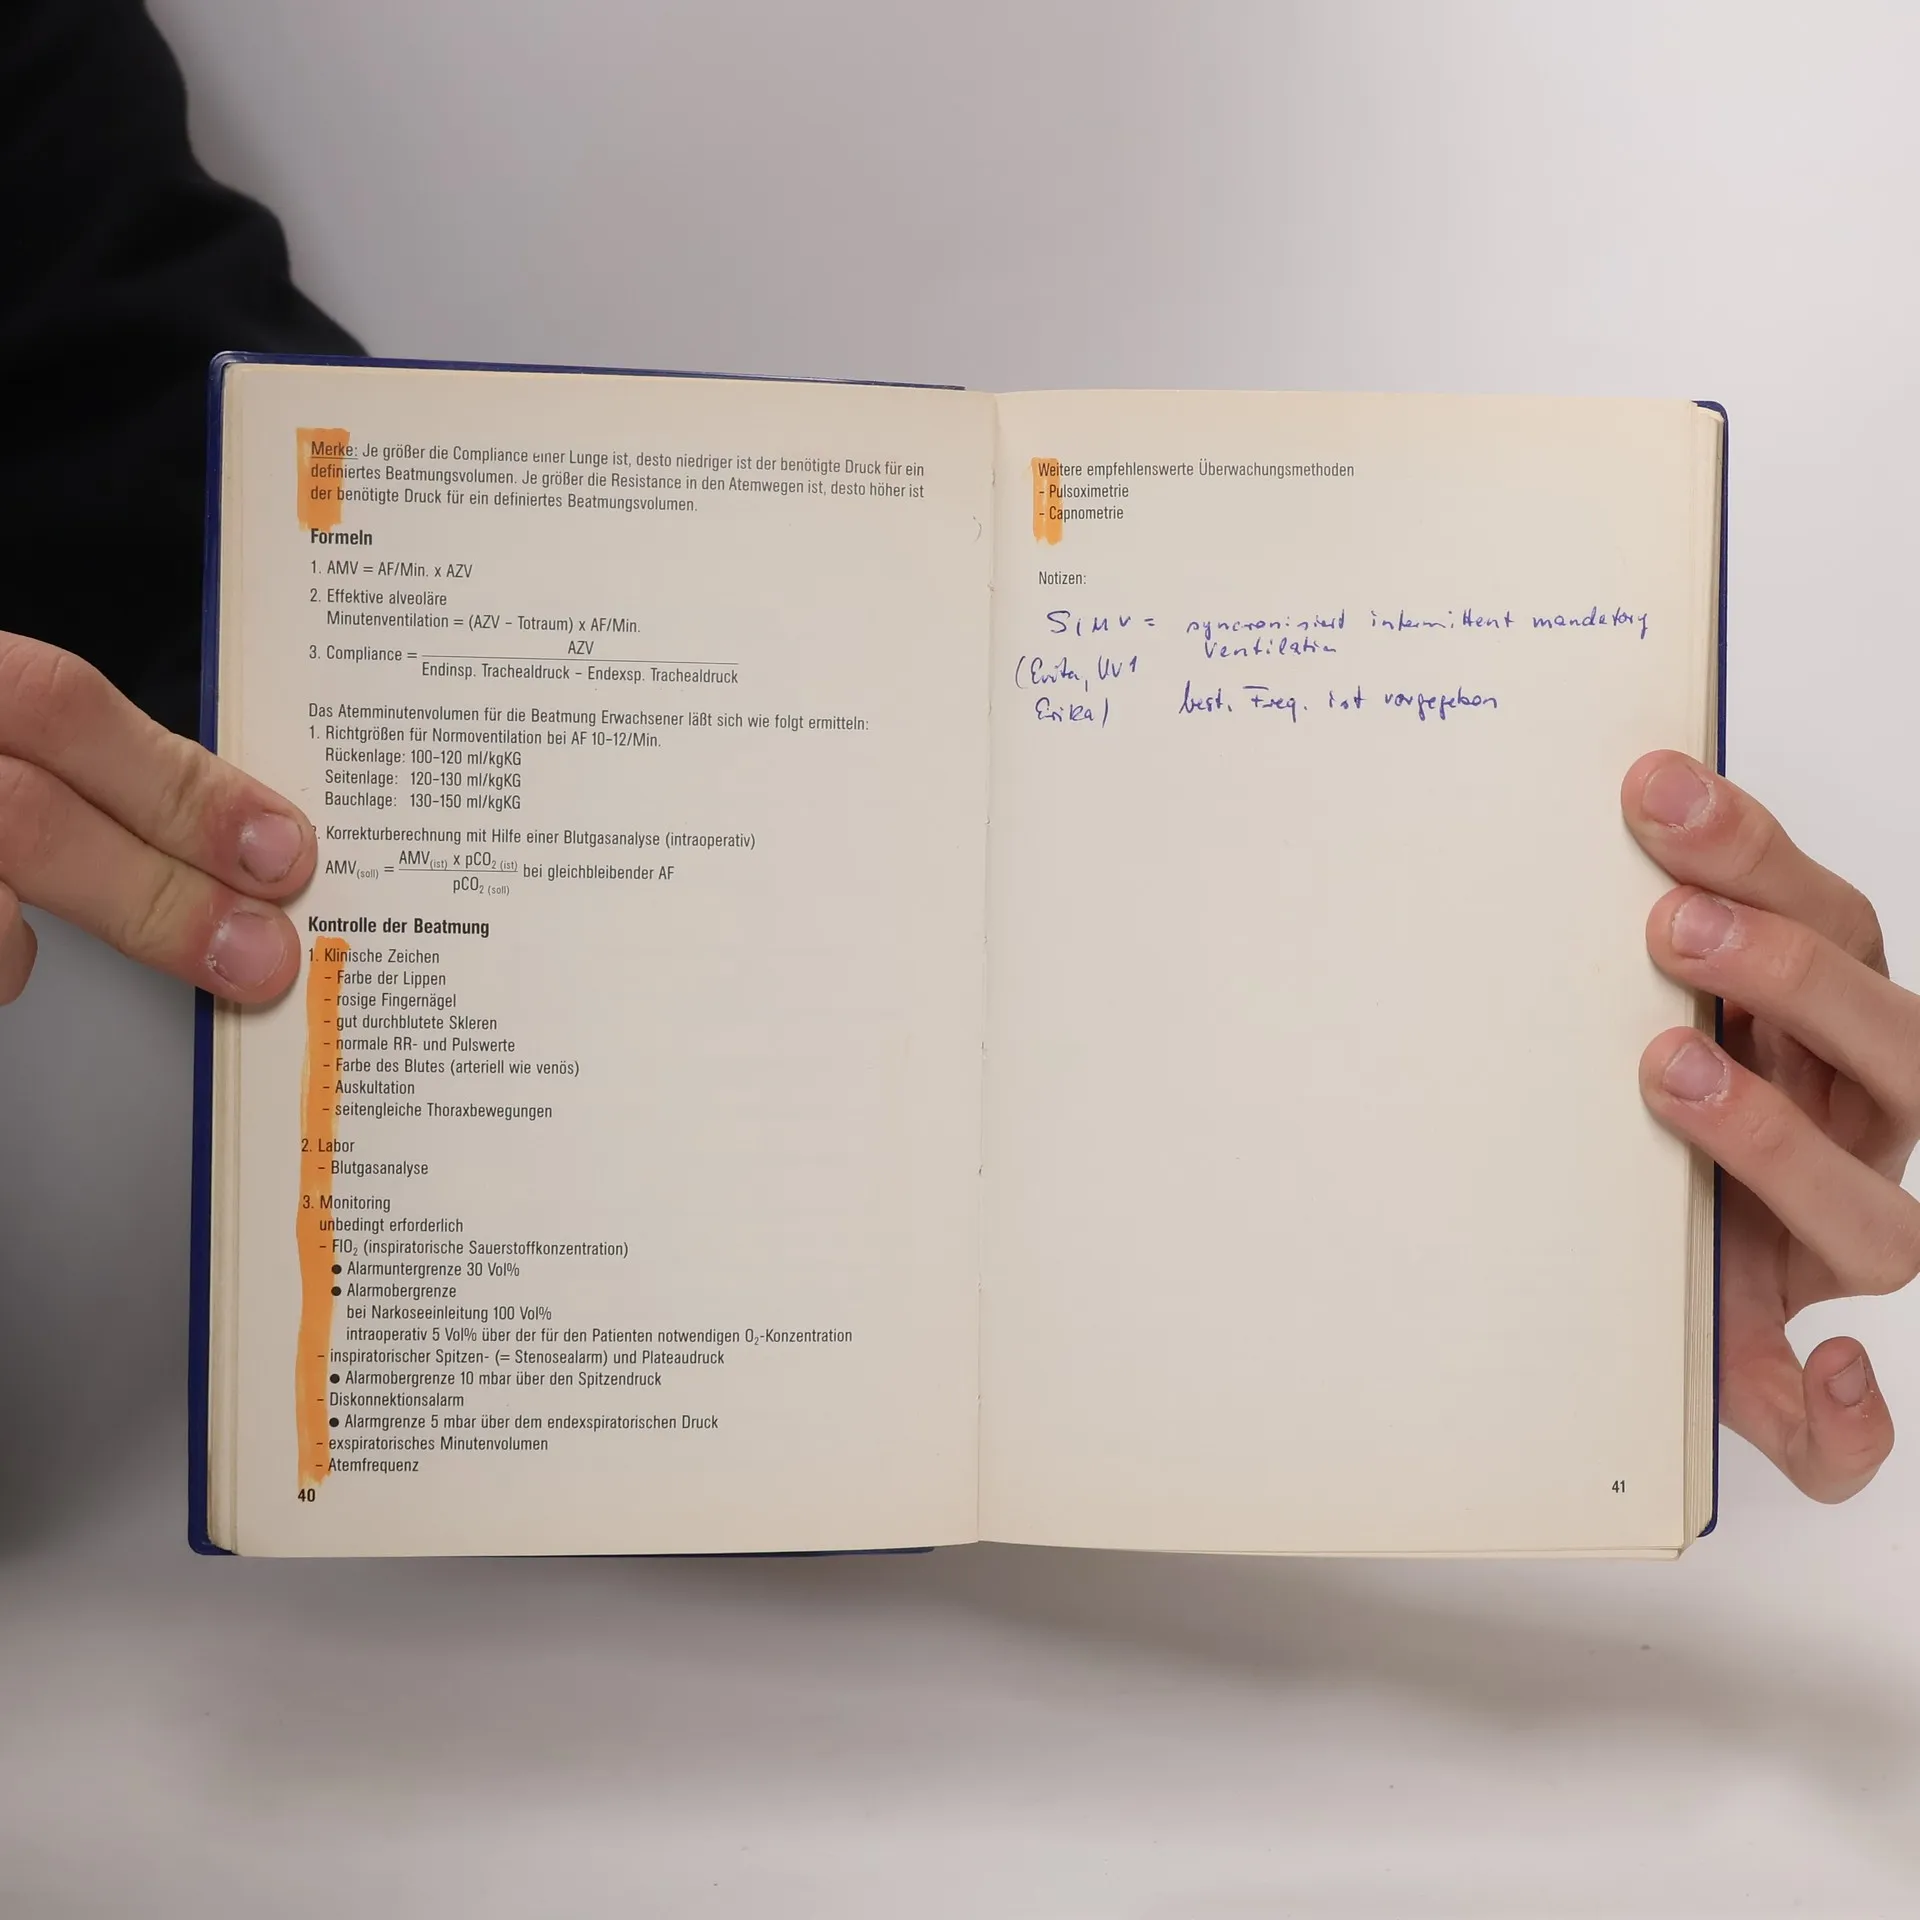 Merke: Je größer die Compliance einer Lunge ist, desto niedriger ist der benötigte Druck für ein
definiertes Beatmungsvolumen. Je größer die Resistance in den Atemwegen ist, desto höher ist
der benötigte Druck für ein definiertes Beatmungsvolumen.
Formeln
1. AMV = AF/Min. x AZV
2. Effektive alveoläre
Minutenventilation = (AZV – Totraum) x AF/Min.
3. Compliance = AZV
Endinsp. Trachealdruck – Endexsp. Trachealdruck
Das Atemminutenvolumen für die Beatmung Erwachsener läßt sich wie folgt ermitteln:
1. Richtgrößen für Normoventilation bei AF 10–12/Min.
Rückenlage: 100–120 ml/kgKG
Seitenlage: 120–130 ml/kgKG
Bauchlage: 130–150 ml/kgKG
Korrekturberechnung mit Hilfe einer Blutgasanalyse (intraoperativ)
AMV(soll) = AMV(ist) x pCO2 (ist) bei gleichbleibender AF
pCO2 (soll)
Kontrolle der Beatmung
1. Klinische Zeichen
– Farbe der Lippen
– rosige Fingernägel
– gut durchblutete Skleren
– normale RR- und Pulswerte
– Farbe des Blutes (arteriell wie venös)
– Auskultation
– seitengleiche Thoraxbewegungen
2. Labor
– Blutgasanalyse
3. Monitoring
unbedingt erforderlich
– FIO2 (inspiratorische Sauerstoffkonzentration)
● Alarmuntergrenze 30 Vol%
● Alarmobergrenze
bei Narkoseeinleitung 100 Vol%
intraoperativ 5 Vol% über der für den Patienten notwendigen O2-Konzentration
– inspiratorischer Spitzen- (= Stenosealarm) und Plateaudruck
● Alarmobergrenze 10 mbar über den Spitzendruck
– Diskonnektionsalarm
● Alarmgrenze 5 mbar über dem endexspiratorischen Druck
– exspiratorisches Minutenvolumen
– Atemfrequenz
40
Weitere empfehlenswerte Überwachungsmethoden
– Pulsoximetrie
– Capnometrie
Notizen:
SIMV = syncronisiert intermittent mandatory
ventilation
(Evita, UV1
Erika) best. Freq. ist vorgegeben
41